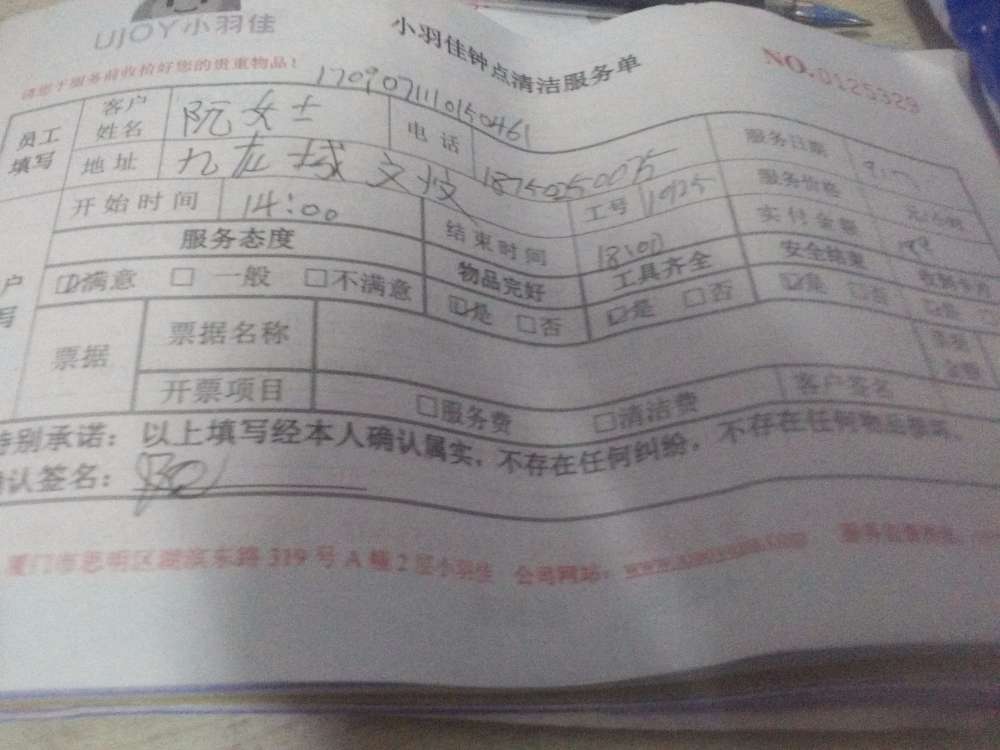 UJOY小羽佳
小羽佳钟点清洁服务单
NO.0125329
请您于服务前收拾好您的贵重物品！
1709071110150461
员工填写 客户姓名 阮女士 电话 18750250075 服务日期
地址 九龙城 工号 服务价格 元/小时
开始时间 14:00 结束时间 18:00 实付金额
服务态度 物品完好 工具齐全 安全结束
满意 一般 不满意 是 否 是 否 是 否
票据 票据名称
开票项目 服务费 清洁费 客户签名
特别承诺：以上填写经本人确认属实，不存在任何纠纷，不存在任何物品损坏。
确认签名：阮
厦门市思明区湖滨东路319号A幢2层小羽佳 公司网站：